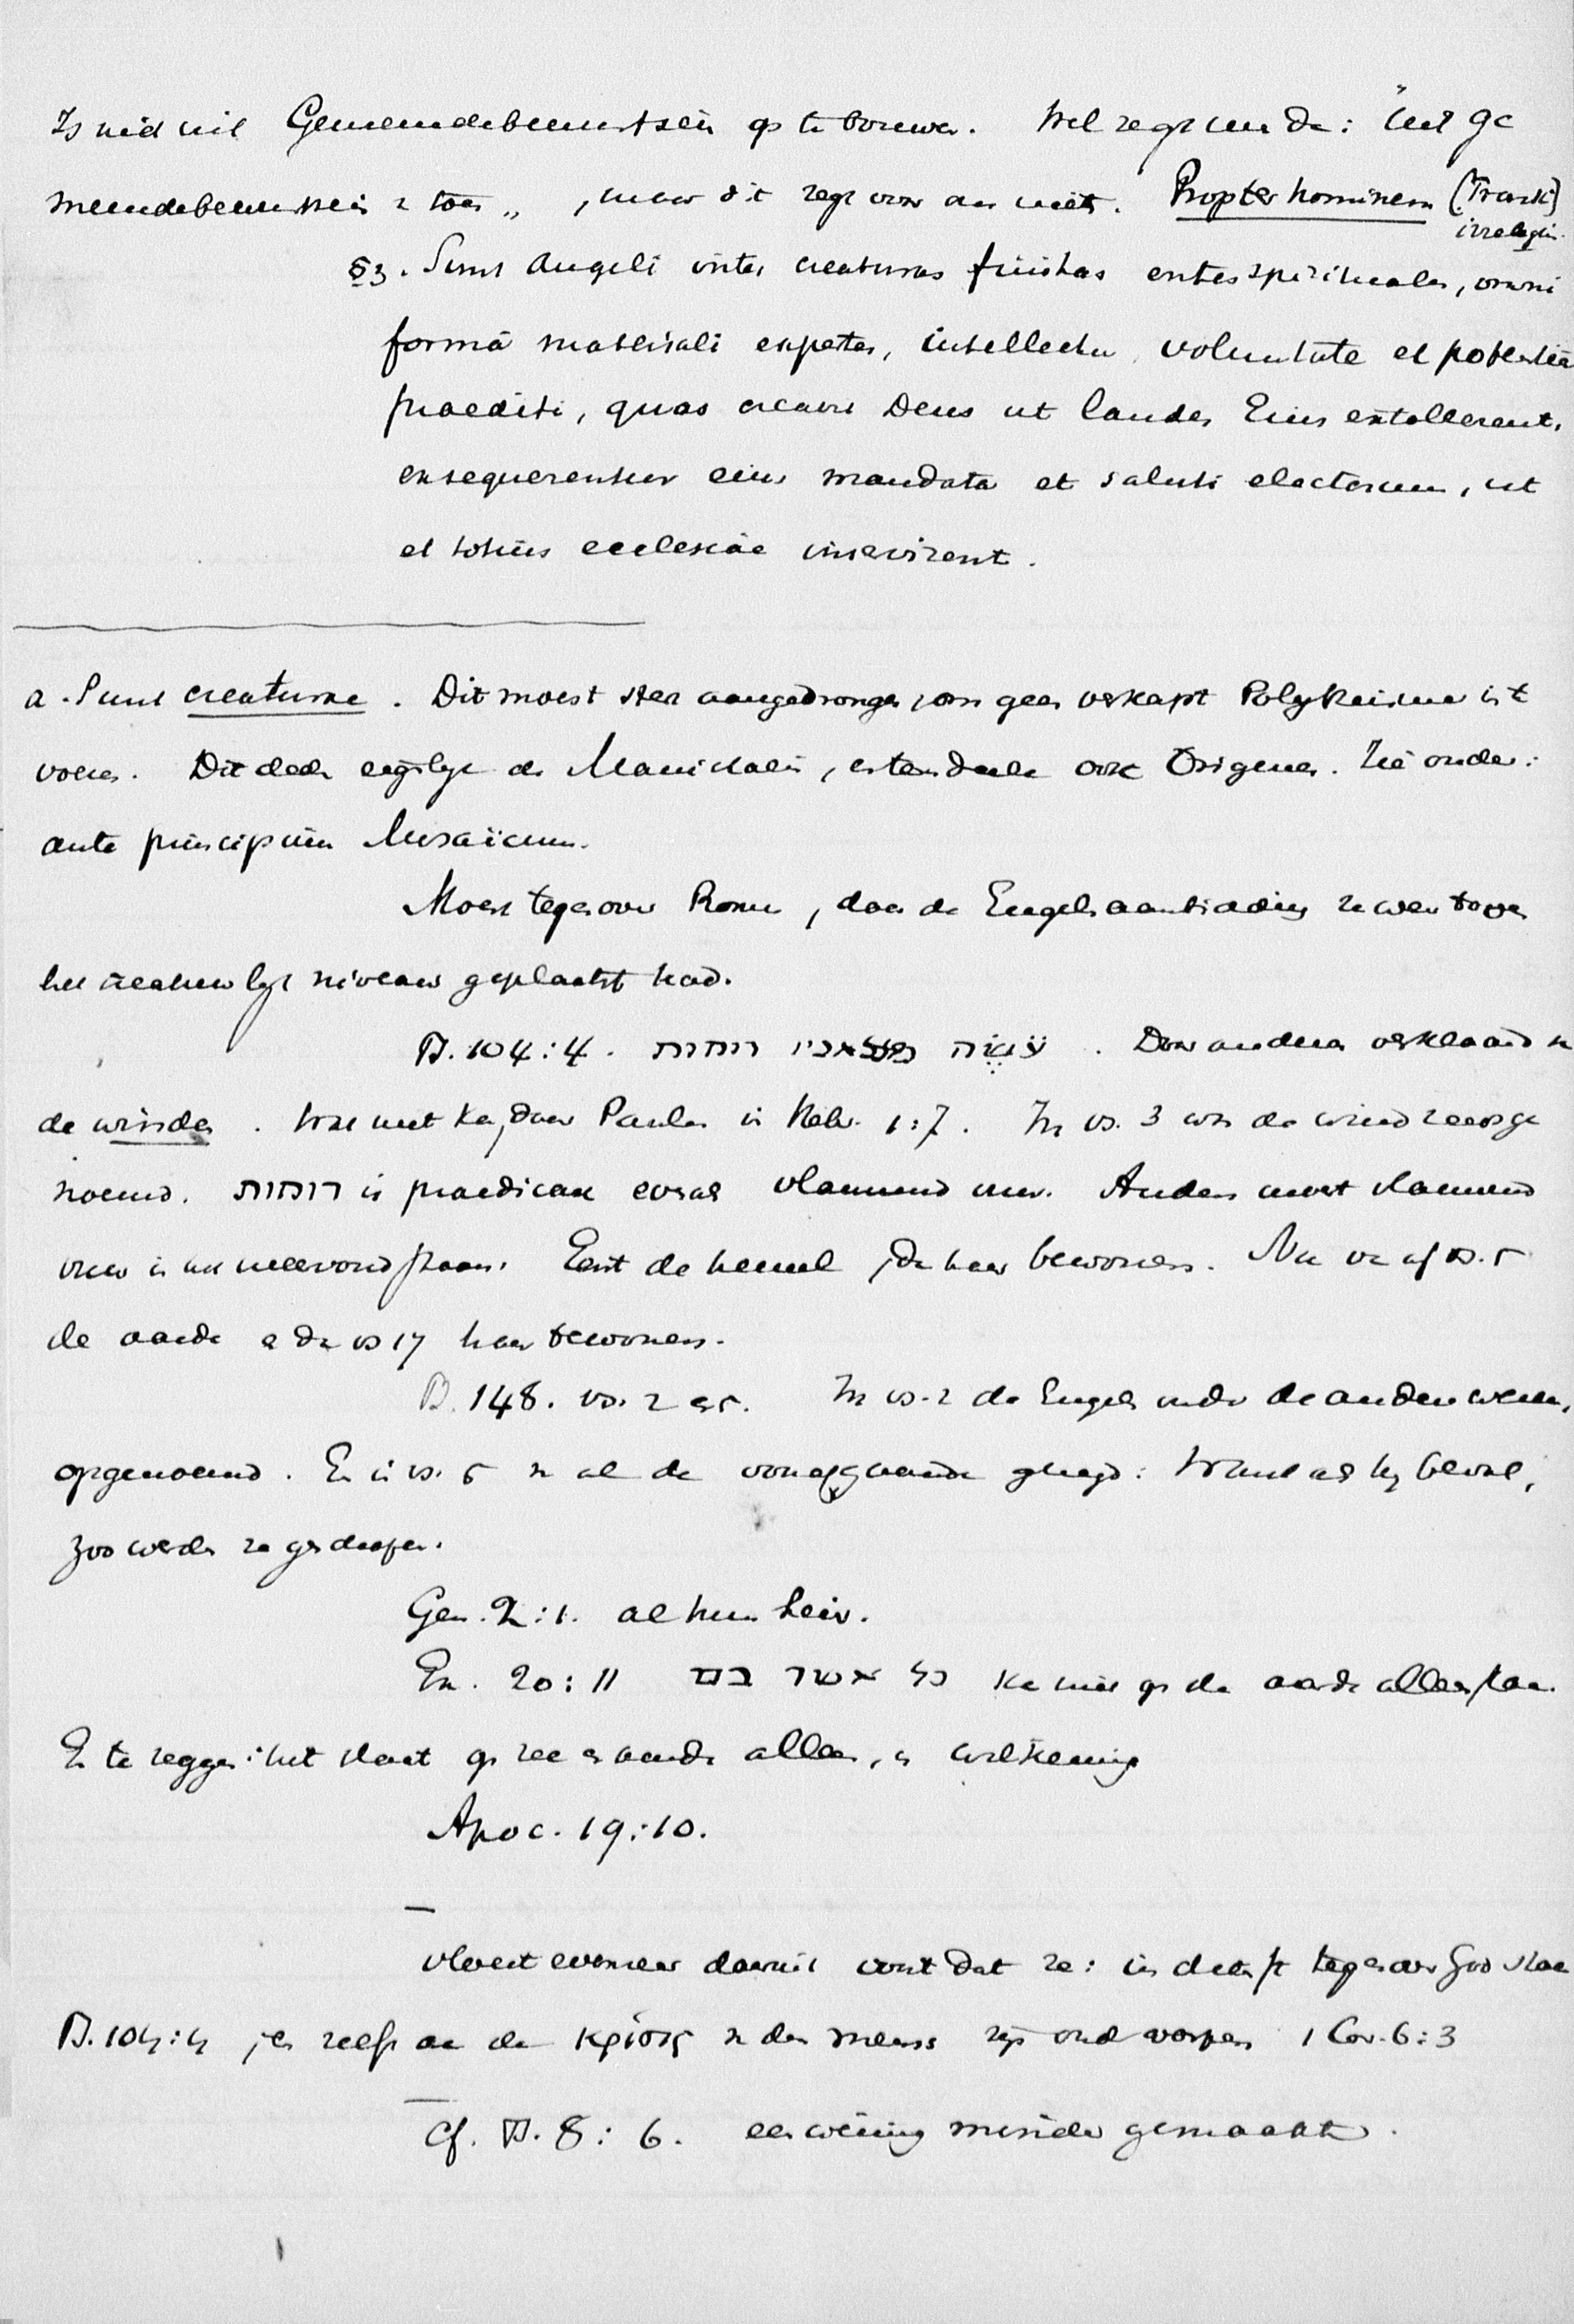 Is niet uit Gemeindebewustsein op te bouwen. Wel zegt men dan: "het Ge
meindebewustsein is toen", maar dit zegt voor ons niets. Propter hominem (Frank)
§3. Sunt Angeli inter creaturas finitas entes spirituales, omni
formâ materiali expertes, intellectu voluntate et potentia
praediti, quos creavit Deus ut laudes Eius extollerent,
exsequerentur eius mandata et saluti electorum, ut
et totius ecclesiae inservirent.
a. Sunt creaturae. Dit moest sterk aangedrongen, om geen verkapt Polytheisme in te
voeren. Dit deden de Manichaeën, ten deele ook Origenes. Zie onder:
ante principium Mosaïcum.
Moest tegenover Rome, daar de Engelenaanbidding ze weer boven
het creatuurlijk niveau geplaatst had.
Ps. 104:4. עֹשֶׂה מלאכיו רוחות. Door anderen verklaard v
de winden. Maar niet, daar Paulus in Hebr. 1:7. In vs. 3 was de wind reeds ge
noemd. רוחות is praedicaat evenals vlammend vuur. Anders moest vlammend
vuur in het meervoud staan. Eerst de hemel, dan haar bewoners. Nu vanaf vs. 5
de aarde en dan vs 17 haar bewoners.
Ps. 148. vs. 2 en 5. In vs. 2 de Engelen onder de andere wezens,
opgenoemd. En in vs. 5 v al de voorafgaande gezegd: Want als hij beval,
zoo werden ze geschapen.
Gen. 2:1. al hun heir.
Ex. 20:11 כל אשר בם kan niet op de aarde alleen slaan.
En te zeggen: het slaat op zee en aarde alleen, is willekeurig
Apoc. 19:10.
vloeit evenzeer daaruit voort dat ze: in dienst tegenover God staan
Ps. 104:4, en zelfs aan de κρίσις v den mensch zijn onderworpen 1 Cor. 6:3
Cf. Ps. 8:6. een weinig minder gemaakt.